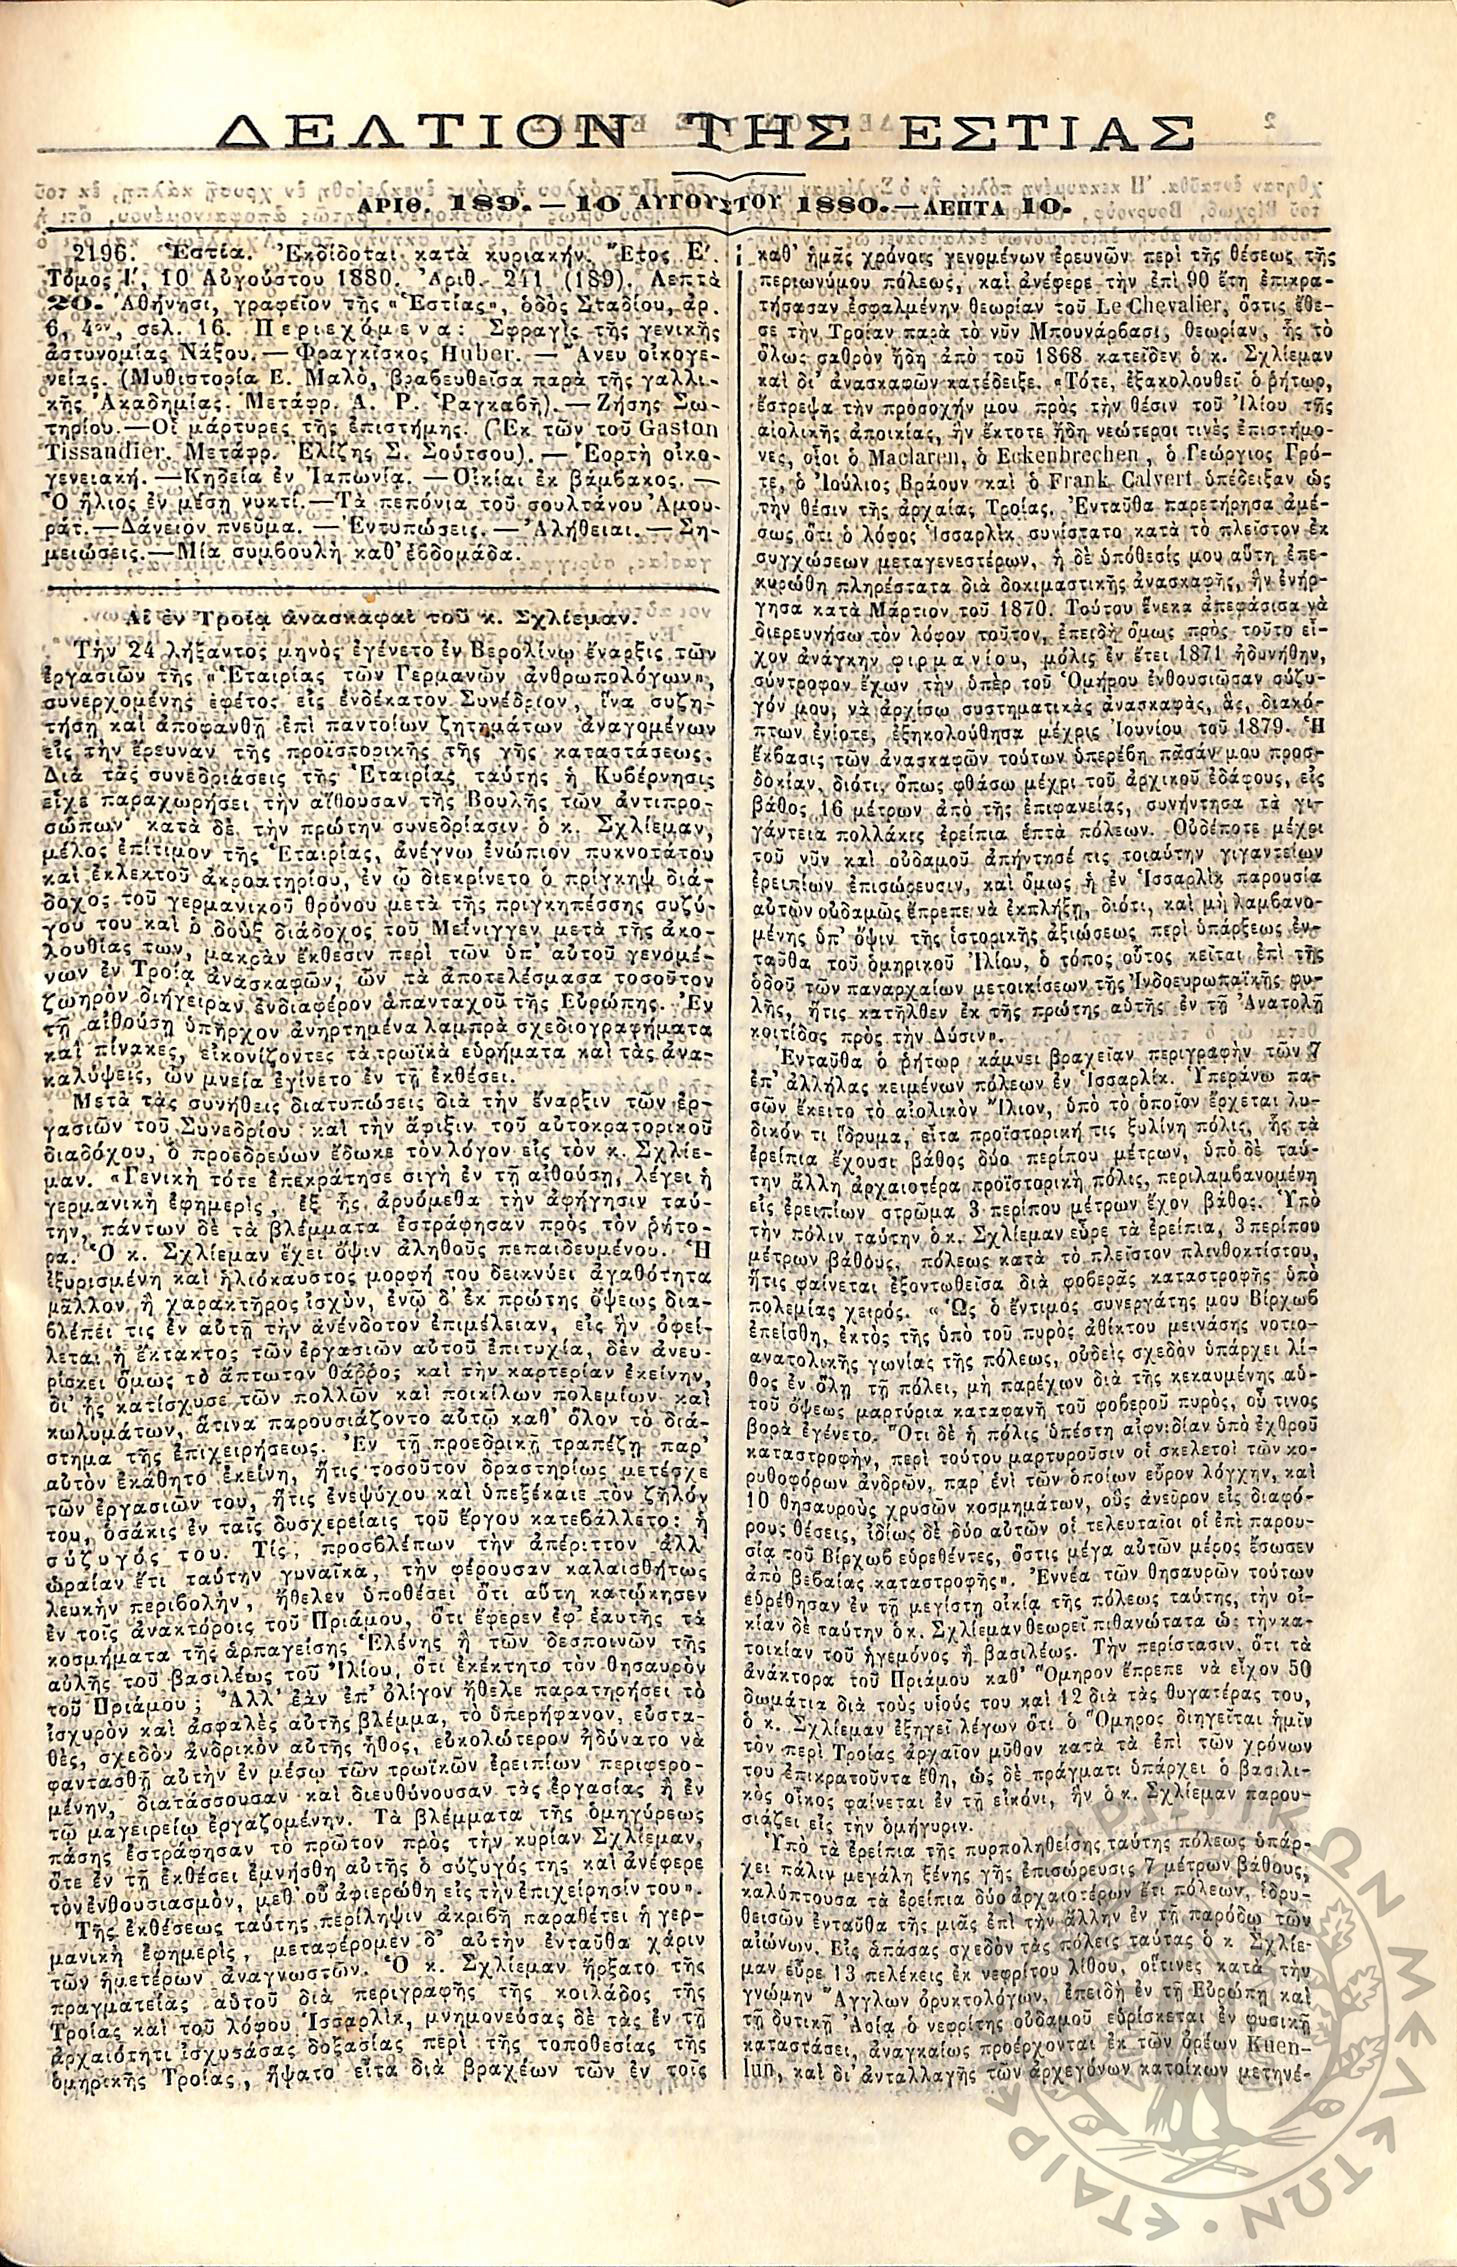 ΔΕΛΤΙΟΝ ΤΗΣ ΕΣΤΙΑΣ
ΑΡΙΘ. 189.—10 ΑΥΓΟΥΣΤΟΥ 1880.—ΛΕΠΤΑ 10.
2196. Ἑστία. Ἐκδίδοται κατὰ κυριακήν. Ἔτος Ε΄.
Τόμος Ι΄, 10 Αὐγούστου 1880. Ἀριθ. 241 (189). Λεπτὰ
20. Ἀθήνησι, γραφεῖον τῆς «Ἑστίας», ὁδὸς Σταδίου, ἀρ.
6, 4ον, σελ. 16. Περιεχόμενα: Σφραγὶς τῆς γενικῆς
ἀστυνομίας Νάξου.—Φραγκίσκος Huber.—Ἄνευ οἰκογε-
νείας. (Μυθιστορία Ε. Μαλὸ, βραβευθεῖσα παρὰ τῆς γαλλι-
κῆς Ἀκαδημίας. Μετάφρ. Α. Ρ. Ῥαγκαβῆ).—Ζήσης Σω-
τηρίου.—Οἱ μάρτυρες τῆς ἐπιστήμης. (Ἐκ τῶν τοῦ Gaston
Tissandier. Μετάφρ. Ἐλίζης Σ. Σούτσου).—Ἑορτὴ οἰκο-
γενειακή.—Κηδεία ἐν Ἰαπωνίᾳ.—Οἰκίαι ἐκ βάμβακος.—
Ὁ ἥλιος ἐν μέσῃ νυκτί.—Τὰ πεπόνια τοῦ σουλτάνου Ἀμου-
ράτ.—Δάνειον πνεῦμα.—Ἐντυπώσεις.—Ἀλήθειαι.—Ση-
μειώσεις.—Μία συμβουλὴ καθ' ἑβδομάδα.
Αἱ ἐν Τροίᾳ ἀνασκαφαὶ τοῦ κ. Σχλίεμαν.
Τὴν 24 λήξαντος μηνὸς ἐγένετο ἐν Βερολίνῳ ἔναρξις τῶν
ἐργασιῶν τῆς «Ἑταιρίας τῶν Γερμανῶν ἀνθρωπολόγων»,
συνερχομένης ἐφέτος εἰς ἑνδέκατον Συνέδριον, ἵνα συζη-
τήσῃ καὶ ἀποφανθῇ ἐπὶ παντοίων ζητημάτων ἀναγομένων
εἰς τὴν ἔρευναν τῆς προϊστορικῆς τῆς γῆς καταστάσεως.
Διὰ τὰς συνεδριάσεις τῆς Ἑταιρίας ταύτης ἡ Κυβέρνησις
εἶχε παραχωρήσει τὴν αἴθουσαν τῆς Βουλῆς τῶν ἀντιπρο-
σώπων· κατὰ δὲ τὴν πρώτην συνεδρίασιν ὁ κ. Σχλίεμαν,
μέλος ἐπίτιμον τῆς Ἑταιρίας, ἀνέγνω ἐνώπιον πυκνοτάτου
καὶ ἐκλεκτοῦ ἀκροατηρίου, ἐν ᾧ διεκρίνετο ὁ πρίγκηψ διά-
δοχος τοῦ γερμανικοῦ θρόνου μετὰ τῆς πριγκηπέσσης συζύ-
γου του καὶ ὁ δοὺξ διάδοχος τοῦ Μείνιγγεν μετὰ τῆς ἀκο-
λουθίας των, μακρὰν ἔκθεσιν περὶ τῶν ὑπ' αὐτοῦ γενομέ-
νων ἐν Τροίᾳ ἀνασκαφῶν, ὧν τὰ ἀποτελέσματα τοσοῦτον
ζωηρὸν διήγειραν ἐνδιαφέρον ἁπανταχοῦ τῆς Εὐρώπης. Ἐν
τῇ αἰθούσῃ ὑπῆρχον ἀνηρτημένα λαμπρὰ σχεδιογραφήματα
καὶ πίνακες, εἰκονίζοντες τὰ τρωϊκὰ εὑρήματα καὶ τὰς ἀνα-
καλύψεις, ὧν μνεία ἐγίνετο ἐν τῇ ἐκθέσει.
Μετὰ τὰς συνήθεις διατυπώσεις διὰ τὴν ἔναρξιν τῶν ἐρ-
γασιῶν τοῦ Συνεδρίου καὶ τὴν ἄφιξιν τοῦ αὐτοκρατορικοῦ
διαδόχου, ὁ προεδρεύων ἔδωκε τὸν λόγον εἰς τὸν κ. Σχλίε-
μαν. «Γενικὴ τότε ἐπεκράτησε σιγὴ ἐν τῇ αἰθούσῃ, λέγει ἡ
γερμανικὴ ἐφημερὶς, ἐξ ἧς ἀρυόμεθα τὴν ἀφήγησιν ταύ-
την, πάντων δὲ τὰ βλέμματα ἐστράφησαν πρὸς τὸν ῥήτο-
ρα. Ὁ κ. Σχλίεμαν ἔχει ὄψιν ἀληθοῦς πεπαιδευμένου. Ἡ
ἐξυρισμένη καὶ ἡλιόκαυστος μορφή του δεικνύει ἀγαθότητα
μᾶλλον ἢ χαρακτῆρος ἰσχὺν, ἐνῷ δ' ἐκ πρώτης ὄψεως δια-
βλέπει τις ἐν αὐτῇ τὴν ἀνένδοτον ἐπιμέλειαν, εἰς ἣν ὀφεί-
λεται ἡ ἔκτακτος τῶν ἐργασιῶν αὐτοῦ ἐπιτυχία, δὲν ἀνευ-
ρίσκει ὅμως τὸ ἄπτωτον θάῤῥος καὶ τὴν καρτερίαν ἐκείνην,
δι' ἧς κατίσχυσε τῶν πολλῶν καὶ ποικίλων πολεμίων καὶ
κωλυμάτων, ἅτινα παρουσιάζοντο αὐτῷ καθ' ὅλον τὸ διά-
στημα τῆς ἐπιχειρήσεως. Ἐν τῇ προεδρικῇ τραπέζῃ παρ'
αὐτὸν ἐκάθητο ἐκείνη, ἥτις τοσοῦτον δραστηρίως μετέσχε
τῶν ἐργασιῶν του, ἥτις ἐνεψύχου καὶ ὑπεξέκαιε τὸν ζῆλόν
του, ὁσάκις ἐν ταῖς δυσχερείαις τοῦ ἔργου κατεβάλλετο: ἡ
σύζυγός του. Τίς, προσβλέπων τὴν ἀπέριττον ἀλλ'
ὡραίαν ἔτι ταύτην γυναῖκα, τὴν φέρουσαν καλαισθήτως
λευκὴν περιβολὴν, ἤθελεν ὑποθέσει ὅτι αὕτη κατῴκησεν
ἐν τοῖς ἀνακτόροις τοῦ Πριάμου, ὅτι ἔφερεν ἐφ' ἑαυτῆς τὰ
κοσμήματα τῆς ἁρπαγείσης Ἑλένης ἢ τῶν δεσποινῶν τῆς
αὐλῆς τοῦ βασιλέως τοῦ Ἰλίου, ὅτι ἐκέκτητο τὸν θησαυρὸν
τοῦ Πριάμου; Ἀλλ' ἐὰν ἐπ' ὀλίγον ἤθελε παρατηρήσει τὸ
ἰσχυρὸν καὶ ἀσφαλὲς αὐτῆς βλέμμα, τὸ ὑπερήφανον, εὐστα-
θὲς, σχεδὸν ἀνδρικὸν αὐτῆς ἦθος, εὐκολώτερον ἠδύνατο νὰ
φαντασθῇ αὐτὴν ἐν μέσῳ τῶν τρωϊκῶν ἐρειπίων περιφερο-
μένην, διατάσσουσαν καὶ διευθύνουσαν τὰς ἐργασίας ἢ ἐν
τῷ μαγειρείῳ ἐργαζομένην. Τὰ βλέμματα τῆς ὁμηγύρεως
πάσης ἐστράφησαν τὸ πρῶτον πρὸς τὴν κυρίαν Σχλίεμαν,
ὅτε ἐν τῇ ἐκθέσει ἐμνήσθη αὐτῆς ὁ σύζυγός της καὶ ἀνέφερε
τὸν ἐνθουσιασμὸν, μεθ' οὗ ἀφιερώθη εἰς τὴν ἐπιχείρησίν του».
Τῆς ἐκθέσεως ταύτης περίληψιν ἀκριβῆ παραθέτει ἡ γερ-
μανικὴ ἐφημερὶς, μεταφέρομεν δ' αὐτὴν ἐνταῦθα χάριν
τῶν ἡμετέρων ἀναγνωστῶν. Ὁ κ. Σχλίεμαν ἤρξατο τῆς
πραγματείας αὑτοῦ διὰ περιγραφῆς τῆς κοιλάδος τῆς
Τροίας καὶ τοῦ λόφου Ἰσσαρλὶκ, μνημονεύσας δὲ τὰς ἐν τῇ
ἀρχαιότητι ἰσχυσάσας δοξασίας περὶ τῆς τοποθεσίας τῆς
ὁμηρικῆς Τροίας, ἥψατο εἶτα διὰ βραχέων τῶν ἐν τοῖς
καθ' ἡμᾶς χρόνοις γενομένων ἐρευνῶν περὶ τῆς θέσεως τῆς
περιωνύμου πόλεως, καὶ ἀνέφερε τὴν ἐπὶ 90 ἔτη ἐπικρα-
τήσασαν ἐσφαλμένην θεωρίαν τοῦ Le Chevalier, ὅστις ἔθε-
σε τὴν Τροίαν παρὰ τὸ νῦν Μπουνάρβασι, θεωρίαν, ἧς τὸ
ὅλως σαθρὸν ἤδη ἀπὸ τοῦ 1868 κατεῖδεν ὁ κ. Σχλίεμαν
καὶ δι' ἀνασκαφῶν κατέδειξε. «Τότε, ἐξακολουθεῖ ὁ ῥήτωρ,
ἔστρεψα τὴν προσοχήν μου πρὸς τὴν θέσιν τοῦ Ἰλίου τῆς
αἰολικῆς ἀποικίας, ἣν ἔκτοτε ἤδη νεώτεροι τινὲς ἐπιστήμο-
νες, οἷοι ὁ Maclaren, ὁ Eckenbrechen, ὁ Γεώργιος Γρό-
τε, ὁ Ἰούλιος Βράουν καὶ ὁ Frank Calvert ὑπέδειξαν ὡς
τὴν θέσιν τῆς ἀρχαίας Τροίας. Ἐνταῦθα παρετήρησα ἀμέ-
σως ὅτι ὁ λόφος Ἰσσαρλὶκ συνίστατο κατὰ τὸ πλεῖστον ἐκ
συγχώσεων μεταγενεστέρων, ἡ δὲ ὑπόθεσίς μου αὕτη ἐπε-
κυρώθη πληρέστατα διὰ δοκιμαστικῆς ἀνασκαφῆς, ἣν ἐνήρ-
γησα κατὰ Μάρτιον τοῦ 1870. Τούτου ἕνεκα ἀπεφάσισα νὰ
διερευνήσω τὸν λόφον τοῦτον, ἐπειδὴ ὅμως πρὸς τοῦτο εἶ-
χον ἀνάγκην φιρμανίου, μόλις ἐν ἔτει 1871 ἠδυνήθην,
σύντροφον ἔχων τὴν ὑπὲρ τοῦ Ὁμήρου ἐνθουσιῶσαν σύζυ-
γόν μου, νὰ ἀρχίσω συστηματικὰς ἀνασκαφὰς, ἃς, διακό-
πτων ἐνίοτε, ἐξηκολούθησα μέχρις Ἰουνίου τοῦ 1879. Ἡ
ἔκβασις τῶν ἀνασκαφῶν τούτων ὑπερέβη πᾶσάν μου προσ-
δοκίαν, διότι, ὅπως φθάσω μέχρι τοῦ ἀρχικοῦ ἐδάφους, εἰς
βάθος 16 μέτρων ἀπὸ τῆς ἐπιφανείας, συνήντησα τὰ γι-
γάντεια πολλάκις ἐρείπια ἑπτὰ πόλεων. Οὐδέποτε μέχρι
τοῦ νῦν καὶ οὐδαμοῦ ἀπήντησέ τις τοιαύτην γιγαντείων
ἐρειπίων ἐπισώρευσιν, καὶ ὅμως ἡ ἐν Ἰσσαρλὶκ παρουσία
αὐτῶν οὐδαμῶς ἔπρεπε νὰ ἐκπλήξῃ, διότι, καὶ μὴ λαμβανο-
μένης ὑπ' ὄψιν τῆς ἱστορικῆς ἀξιώσεως περὶ ὑπάρξεως ἐν-
ταῦθα τοῦ ὁμηρικοῦ Ἰλίου, ὁ τόπος οὗτος κεῖται ἐπὶ τῆς
ὁδοῦ τῶν παναρχαίων μετοικίσεων τῆς Ἰνδοευρωπαϊκῆς φυ-
λῆς, ἥτις κατῆλθεν ἐκ τῆς πρώτης αὑτῆς ἐν τῇ Ἀνατολῇ
κοιτίδος πρὸς τὴν Δύσιν».
Ἐνταῦθα ὁ ῥήτωρ κάμνει βραχεῖαν περιγραφὴν τῶν 7
ἐπ' ἀλλήλας κειμένων πόλεων ἐν Ἰσσαρλίκ. Ὑπεράνω πα-
σῶν ἔκειτο τὸ αἰολικὸν Ἴλιον, ὑπὸ τὸ ὁποῖον ἔρχεται λυ-
δικόν τι ἵδρυμα, εἶτα προϊστορική τις ξυλίνη πόλις, ἧς τὰ
ἐρείπια ἔχουσι βάθος δύο περίπου μέτρων, ὑπὸ δὲ ταύ-
την ἄλλη ἀρχαιοτέρα προϊστορικὴ πόλις, περιλαμβανομένη
εἰς ἐρειπίων στρῶμα 3 περίπου μέτρων ἔχον βάθος. Ὑπὸ
τὴν πόλιν ταύτην ὁ κ. Σχλίεμαν εὗρε τὰ ἐρείπια, 3 περίπου
μέτρων βάθους, πόλεως κατὰ τὸ πλεῖστον πλινθοκτίστου,
ἥτις φαίνεται ἐξοντωθεῖσα διὰ φοβερᾶς καταστροφῆς ὑπὸ
πολεμίας χειρός. «Ὡς ὁ ἔντιμός συνεργάτης μου Βίρχωβ
ἐπείσθη, ἐκτὸς τῆς ὑπὸ τοῦ πυρὸς ἀθίκτου μεινάσης νοτιο-
ανατολικῆς γωνίας τῆς πόλεως, οὐδεὶς σχεδὸν ὑπάρχει λί-
θος ἐν ὅλῃ τῇ πόλει, μὴ παρέχων διὰ τῆς κεκαυμένης αὑ-
τοῦ ὄψεως μαρτύρια καταφανῆ τοῦ φοβεροῦ πυρὸς, οὗ τινος
βορὰ ἐγένετο. Ὅτι δὲ ἡ πόλις ὑπέστη αἰφνιδίαν ὑπὸ ἐχθροῦ
καταστροφὴν, περὶ τούτου μαρτυροῦσιν οἱ σκελετοὶ τῶν κο-
ρυθοφόρων ἀνδρῶν, παρ' ἑνὶ τῶν ὁποίων εὗρον λόγχην, καὶ
10 θησαυροὺς χρυσῶν κοσμημάτων, οὓς ἀνεῦρον εἰς διαφό-
ρους θέσεις, ἰδίως δὲ δύο αὐτῶν οἱ τελευταῖοι οἱ ἐπὶ παρου-
σίᾳ τοῦ Βίρχωβ εὑρεθέντες, ὅστις μέγα αὐτῶν μέρος ἔσωσεν
ἀπὸ βεβαίας καταστροφῆς». Ἐννέα τῶν θησαυρῶν τούτων
εὑρέθησαν ἐν τῇ μεγίστῃ οἰκίᾳ τῆς πόλεως ταύτης, τὴν οἰ-
κίαν δὲ ταύτην ὁ κ. Σχλίεμαν θεωρεῖ πιθανώτατα ὡς τὴν κα-
τοικίαν τοῦ ἡγεμόνος ἢ βασιλέως. Τὴν περίστασιν, ὅτι τὰ
ἀνάκτορα τοῦ Πριάμου καθ' Ὅμηρον ἔπρεπε νὰ εἶχον 50
δωμάτια διὰ τοὺς υἱούς του καὶ 12 διὰ τὰς θυγατέρας του,
ὁ κ. Σχλίεμαν ἐξηγεῖ λέγων ὅτι ὁ Ὅμηρος διηγεῖται ἡμῖν
τὸν περὶ Τροίας ἀρχαῖον μῦθον κατὰ τὰ ἐπὶ τῶν χρόνων
του ἐπικρατοῦντα ἔθη, ὡς δὲ πράγματι ὑπάρχει ὁ βασιλι-
κὸς οἶκος φαίνεται ἐν τῇ εἰκόνι, ἣν ὁ κ. Σχλίεμαν παρου-
σιάζει εἰς τὴν ὁμήγυριν.
Ὑπὸ τὰ ἐρείπια τῆς πυρποληθείσης ταύτης πόλεως ὑπάρ-
χει πάλιν μεγάλη ξένης γῆς ἐπισώρευσις 7 μέτρων βάθους,
καλύπτουσα τὰ ἐρείπια δύο ἀρχαιοτέρων ἔτι πόλεων, ἱδρυ-
θεισῶν ἐνταῦθα τῆς μιᾶς ἐπὶ τὴν ἄλλην ἐν τῇ παρόδῳ τῶν
αἰώνων. Εἰς ἁπάσας σχεδὸν τὰς πόλεις ταύτας ὁ κ Σχλίε-
μαν εὗρε 13 πελέκεις ἐκ νεφρίτου λίθου, οἵτινες κατὰ τὴν
γνώμην Ἄγγλων ὀρυκτολόγων, ἐπειδὴ ἐν τῇ Εὐρώπῃ καὶ
τῇ δυτικῇ Ἀσίᾳ ὁ νεφρίτης οὐδαμοῦ εὑρίσκεται ἐν φυσικῇ
καταστάσει, ἀναγκαίως προέρχονται ἐκ τῶν ὀρέων Kuen-
lun, καὶ δι' ἀνταλλαγῆς τῶν ἀρχεγόνων κατοίκων μετηνέ-